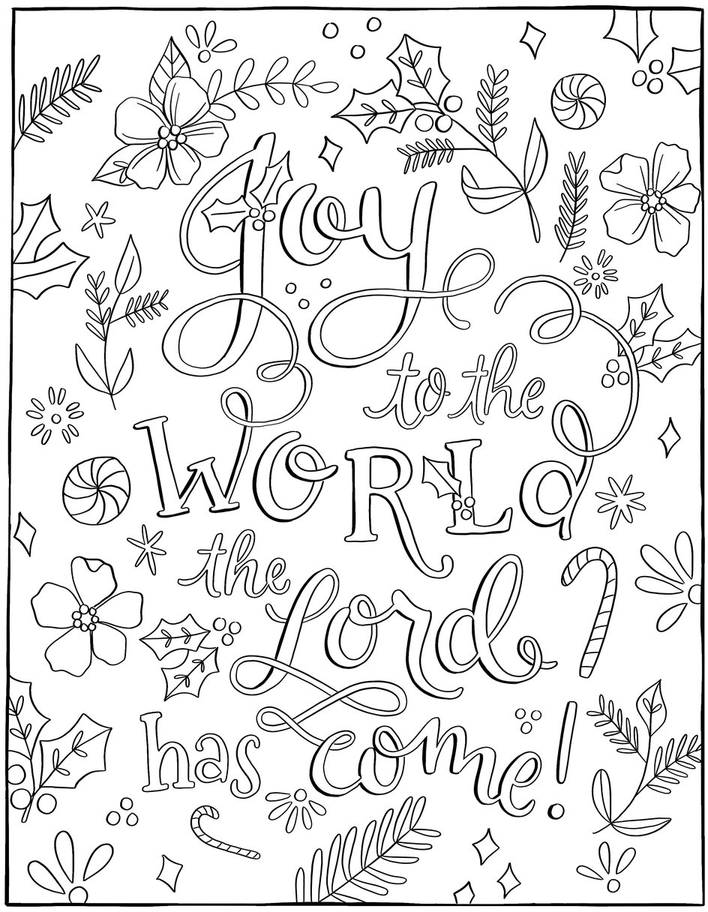 Joy
to the
WORLd
the
Lord
has come!